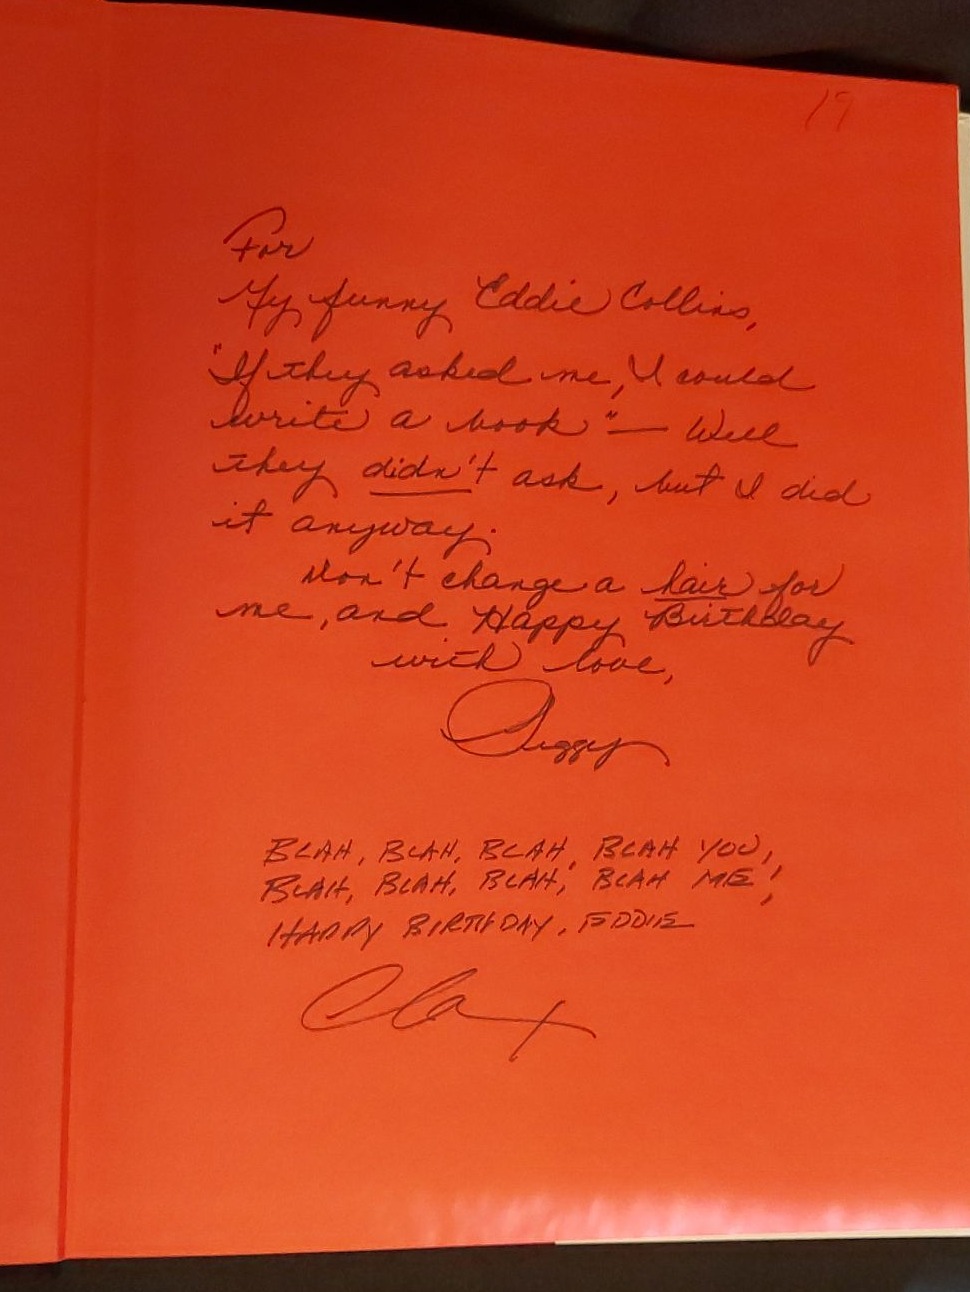 19
For
My funny Eddie Collins,
"If they asked me, I could
write a book" — Well
they didn't ask, but I did
it anyway.
Don't change a hair for
me, and Happy Birthday
with love,
Peggy
BLAH, BLAH, BLAH, BLAH YOU,
BLAH, BLAH, BLAH, BLAH ME,
HAPPY BIRTHDAY, EDDIE